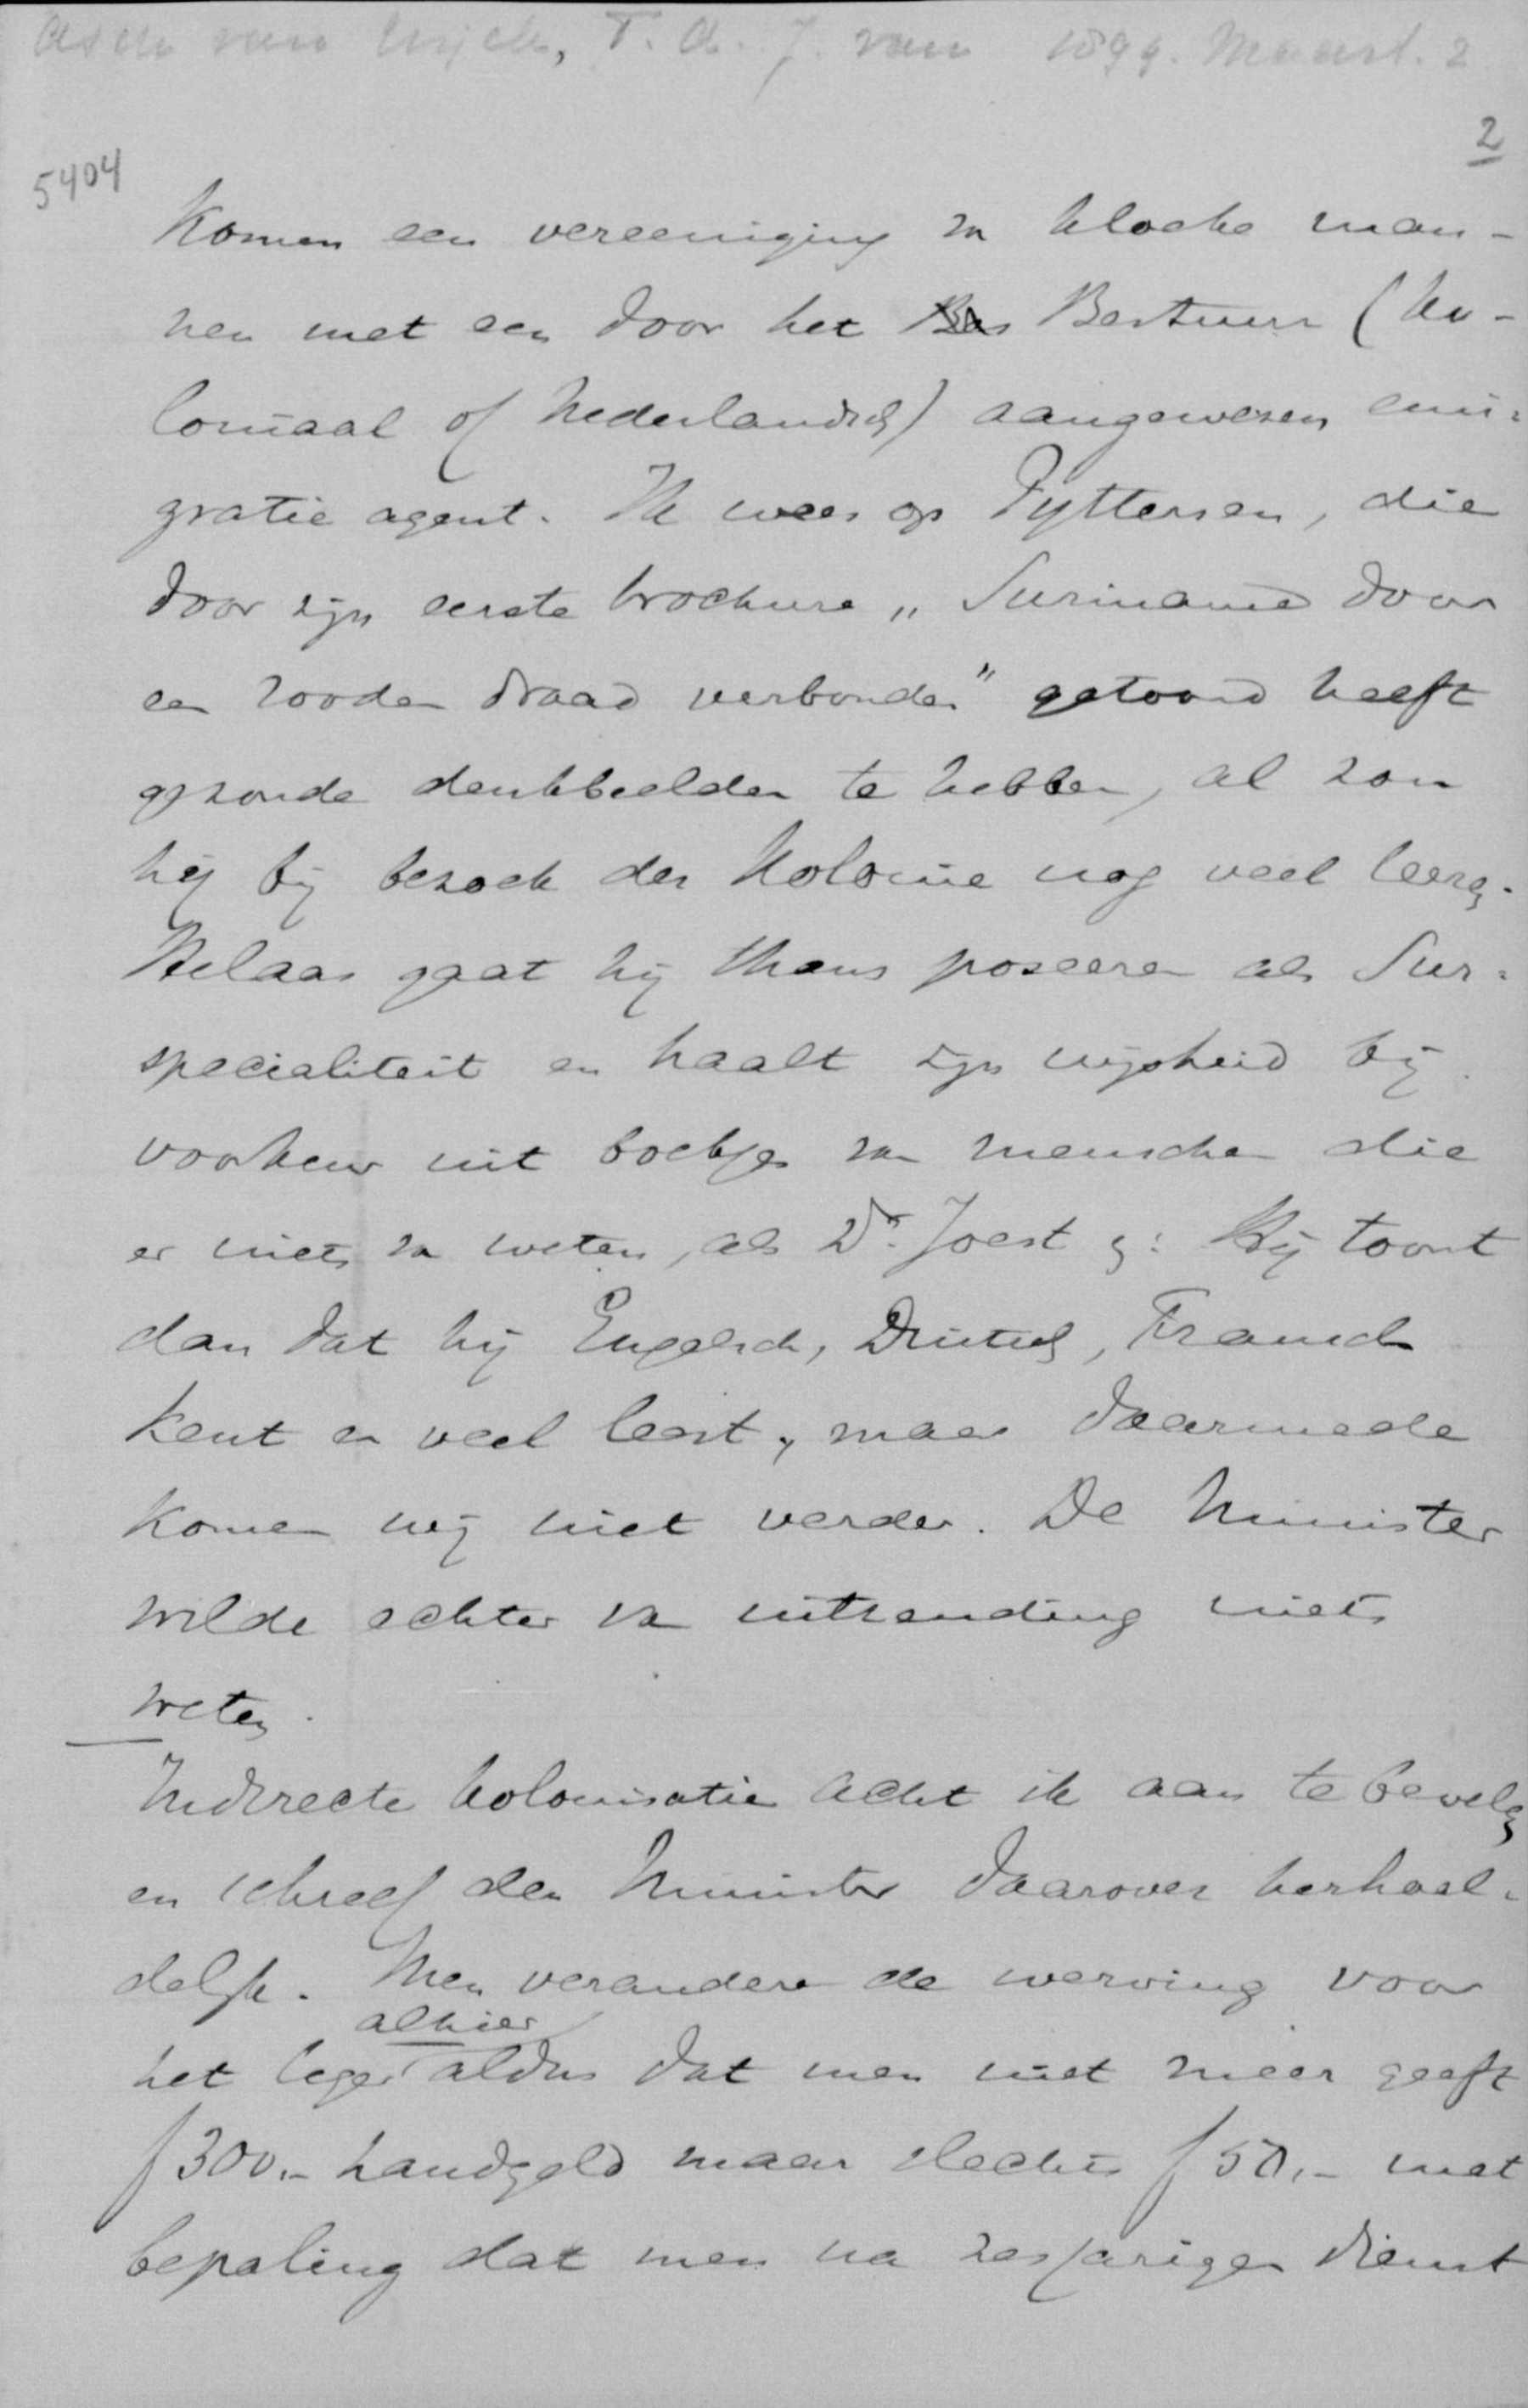 Asch van Wijck, T. A. J. van 1899. Maart. 2
2
5404
Komen een vereeniging van kloeke man-
nen met een door het Bestuur (ko-
loniaal of Nederlandsch) aangewezen emi-
gratie agent. Ik wees op Pyttersen, die
door zijn eerste brochure „Suriname door
een rooden draad verbonden" getoond heeft
gezonde denkbeelden te hebben, al zou
hij bij bezoek der Kolonie nog veel leeren.
Helaas gaat hij thans poseeren als Sur-
specialiteit en haalt zijn wijsheid bij
voorkeur uit boekjes van menschen die
er niets van weten, als Dr. Joest en: Hij toont
dan dat hij Engelsch, Duitsch, Fransch
kent en veel leest, maar daarmede
komen wij niet verder. De Minister
wilde echter van uitzending niets
weten.
Indirecte kolonisatie acht ik aan te bevelen
en schreef den Minister daarover herhaal-
delijk. Men verandere de werving voor
alhier
het leger aldus dat men niet meer geeft
f 300.- handgeld maar slechts f 50.- met
bepaling dat men na zesjarigen dienst